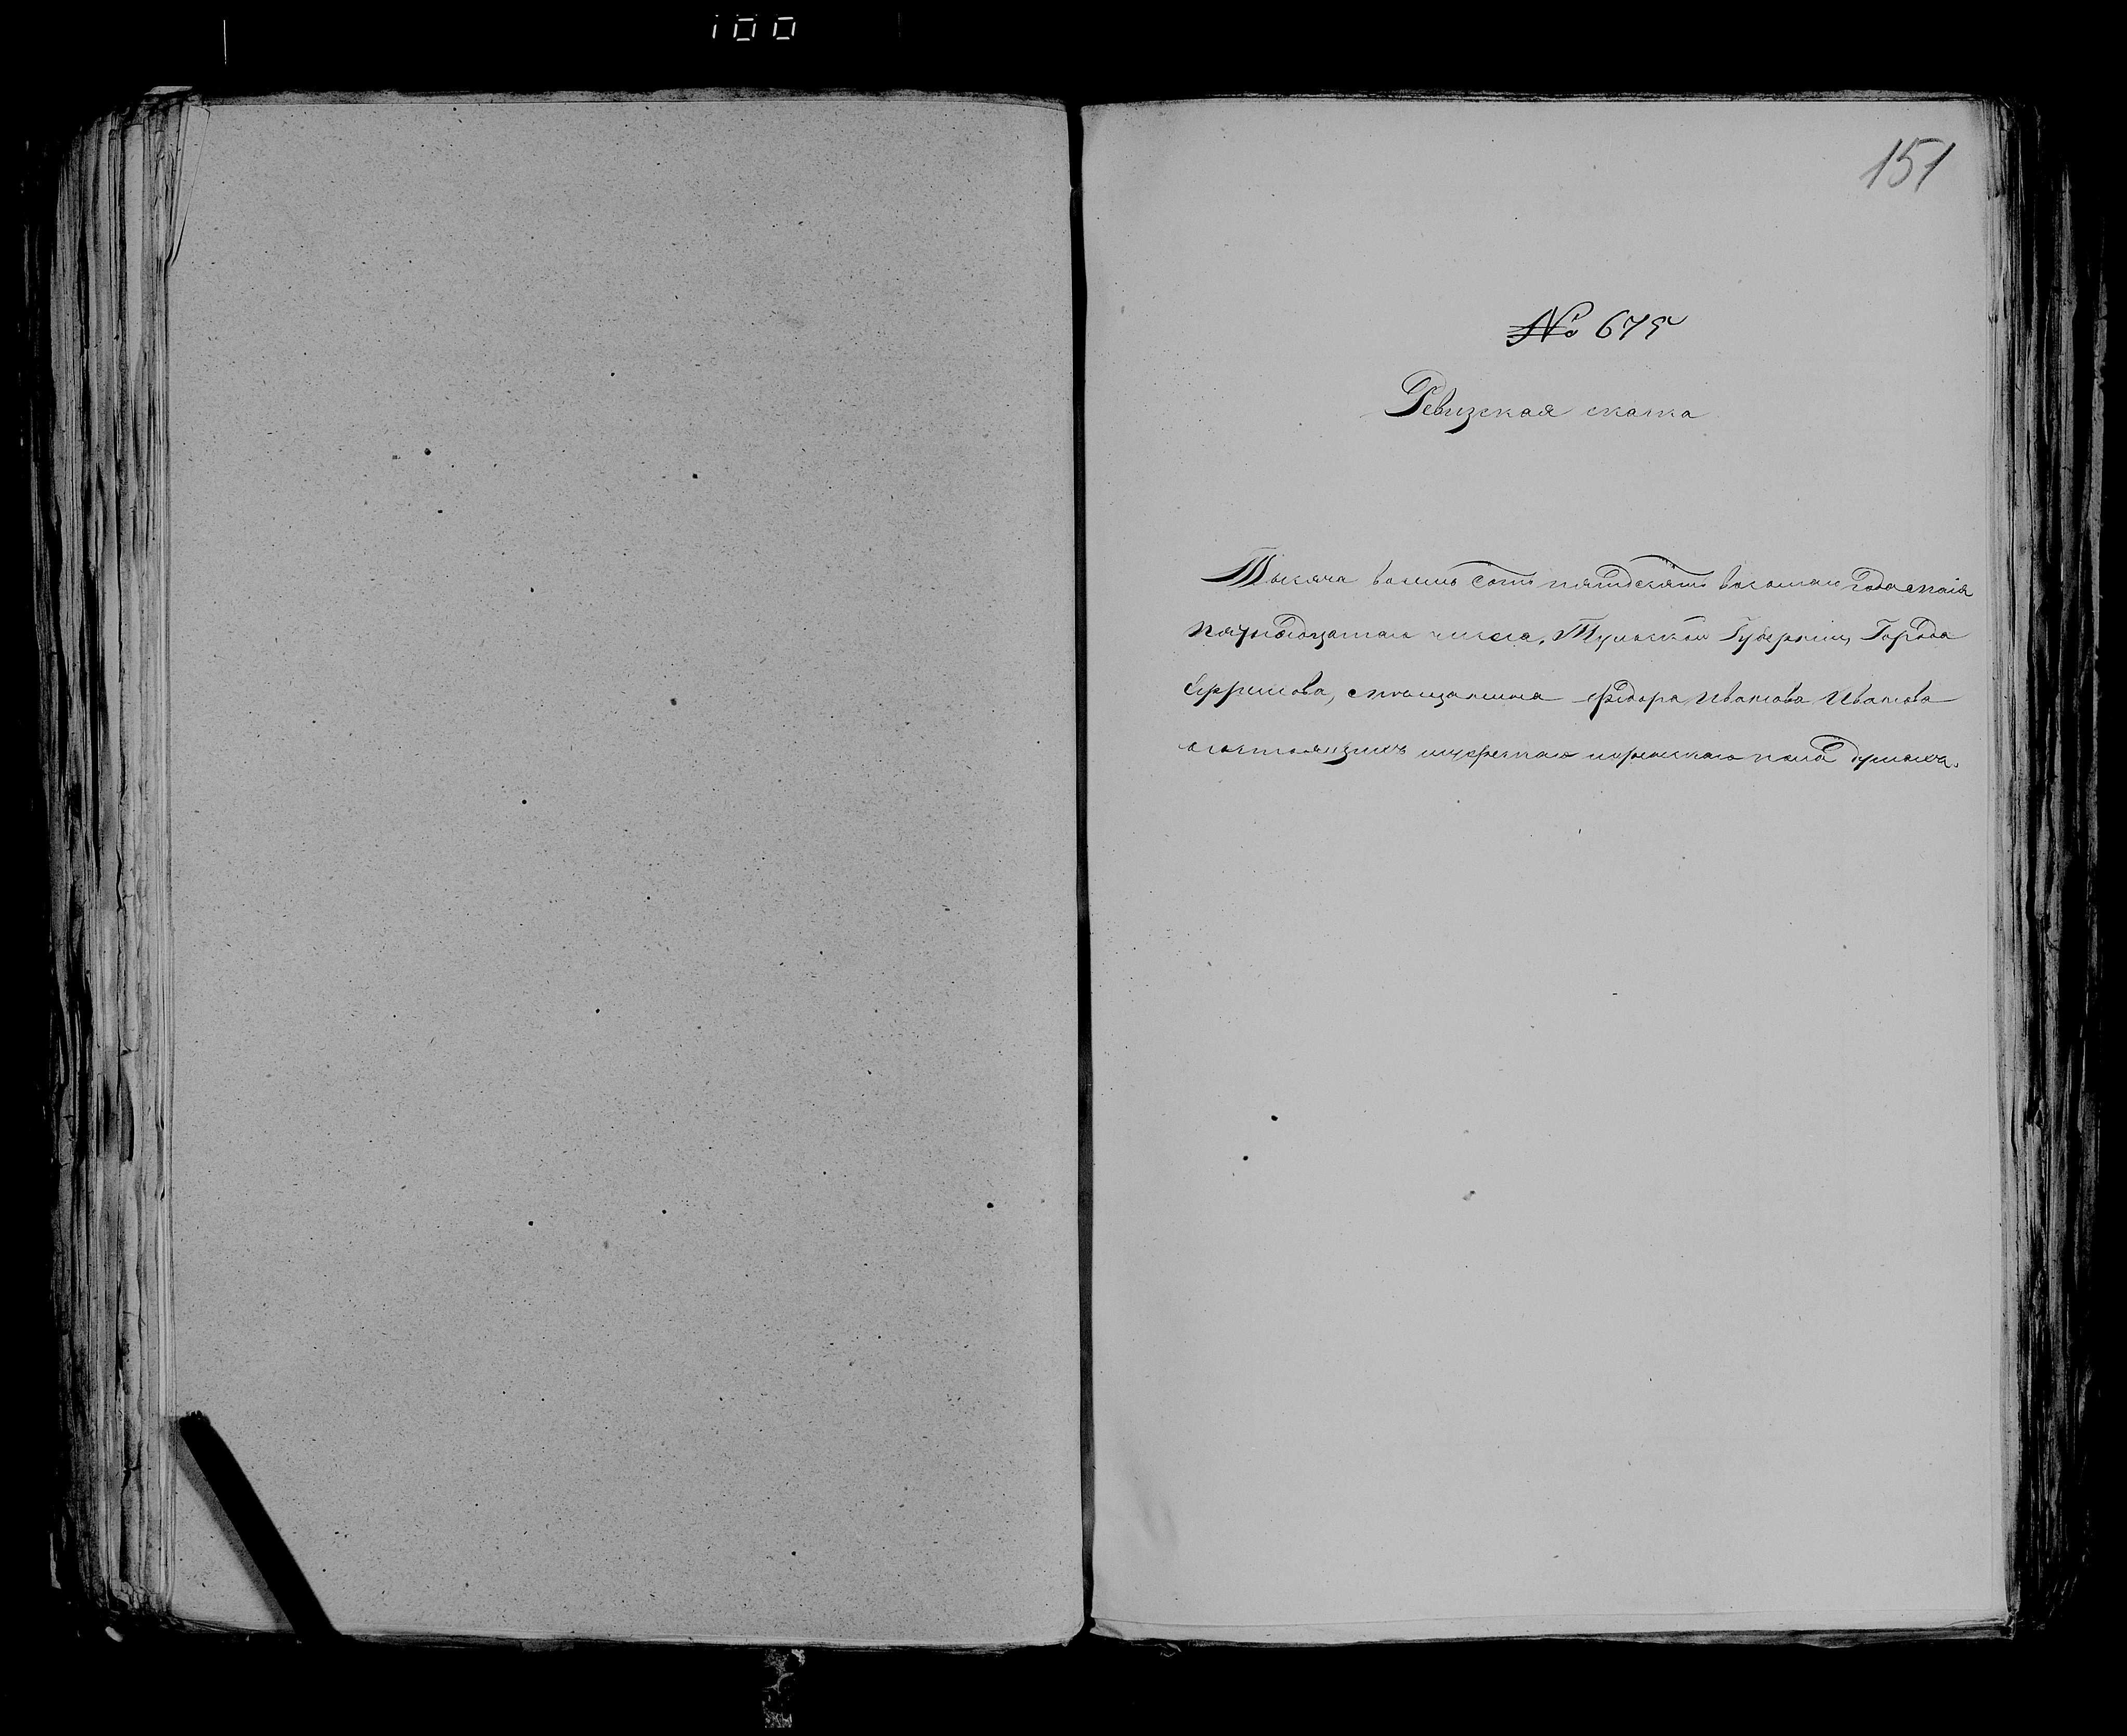 100
151
№ 675
Ревизская скаска
Тысяча восемь сотъ пятдесятъ восьмаго года маія
пятнадцатаго числа, Тульской Губерніи, Города
Ефремова, мѣщанина Федора Иванова Иванова
о состоящихъ мужескаго и женскаго пола душахъ.